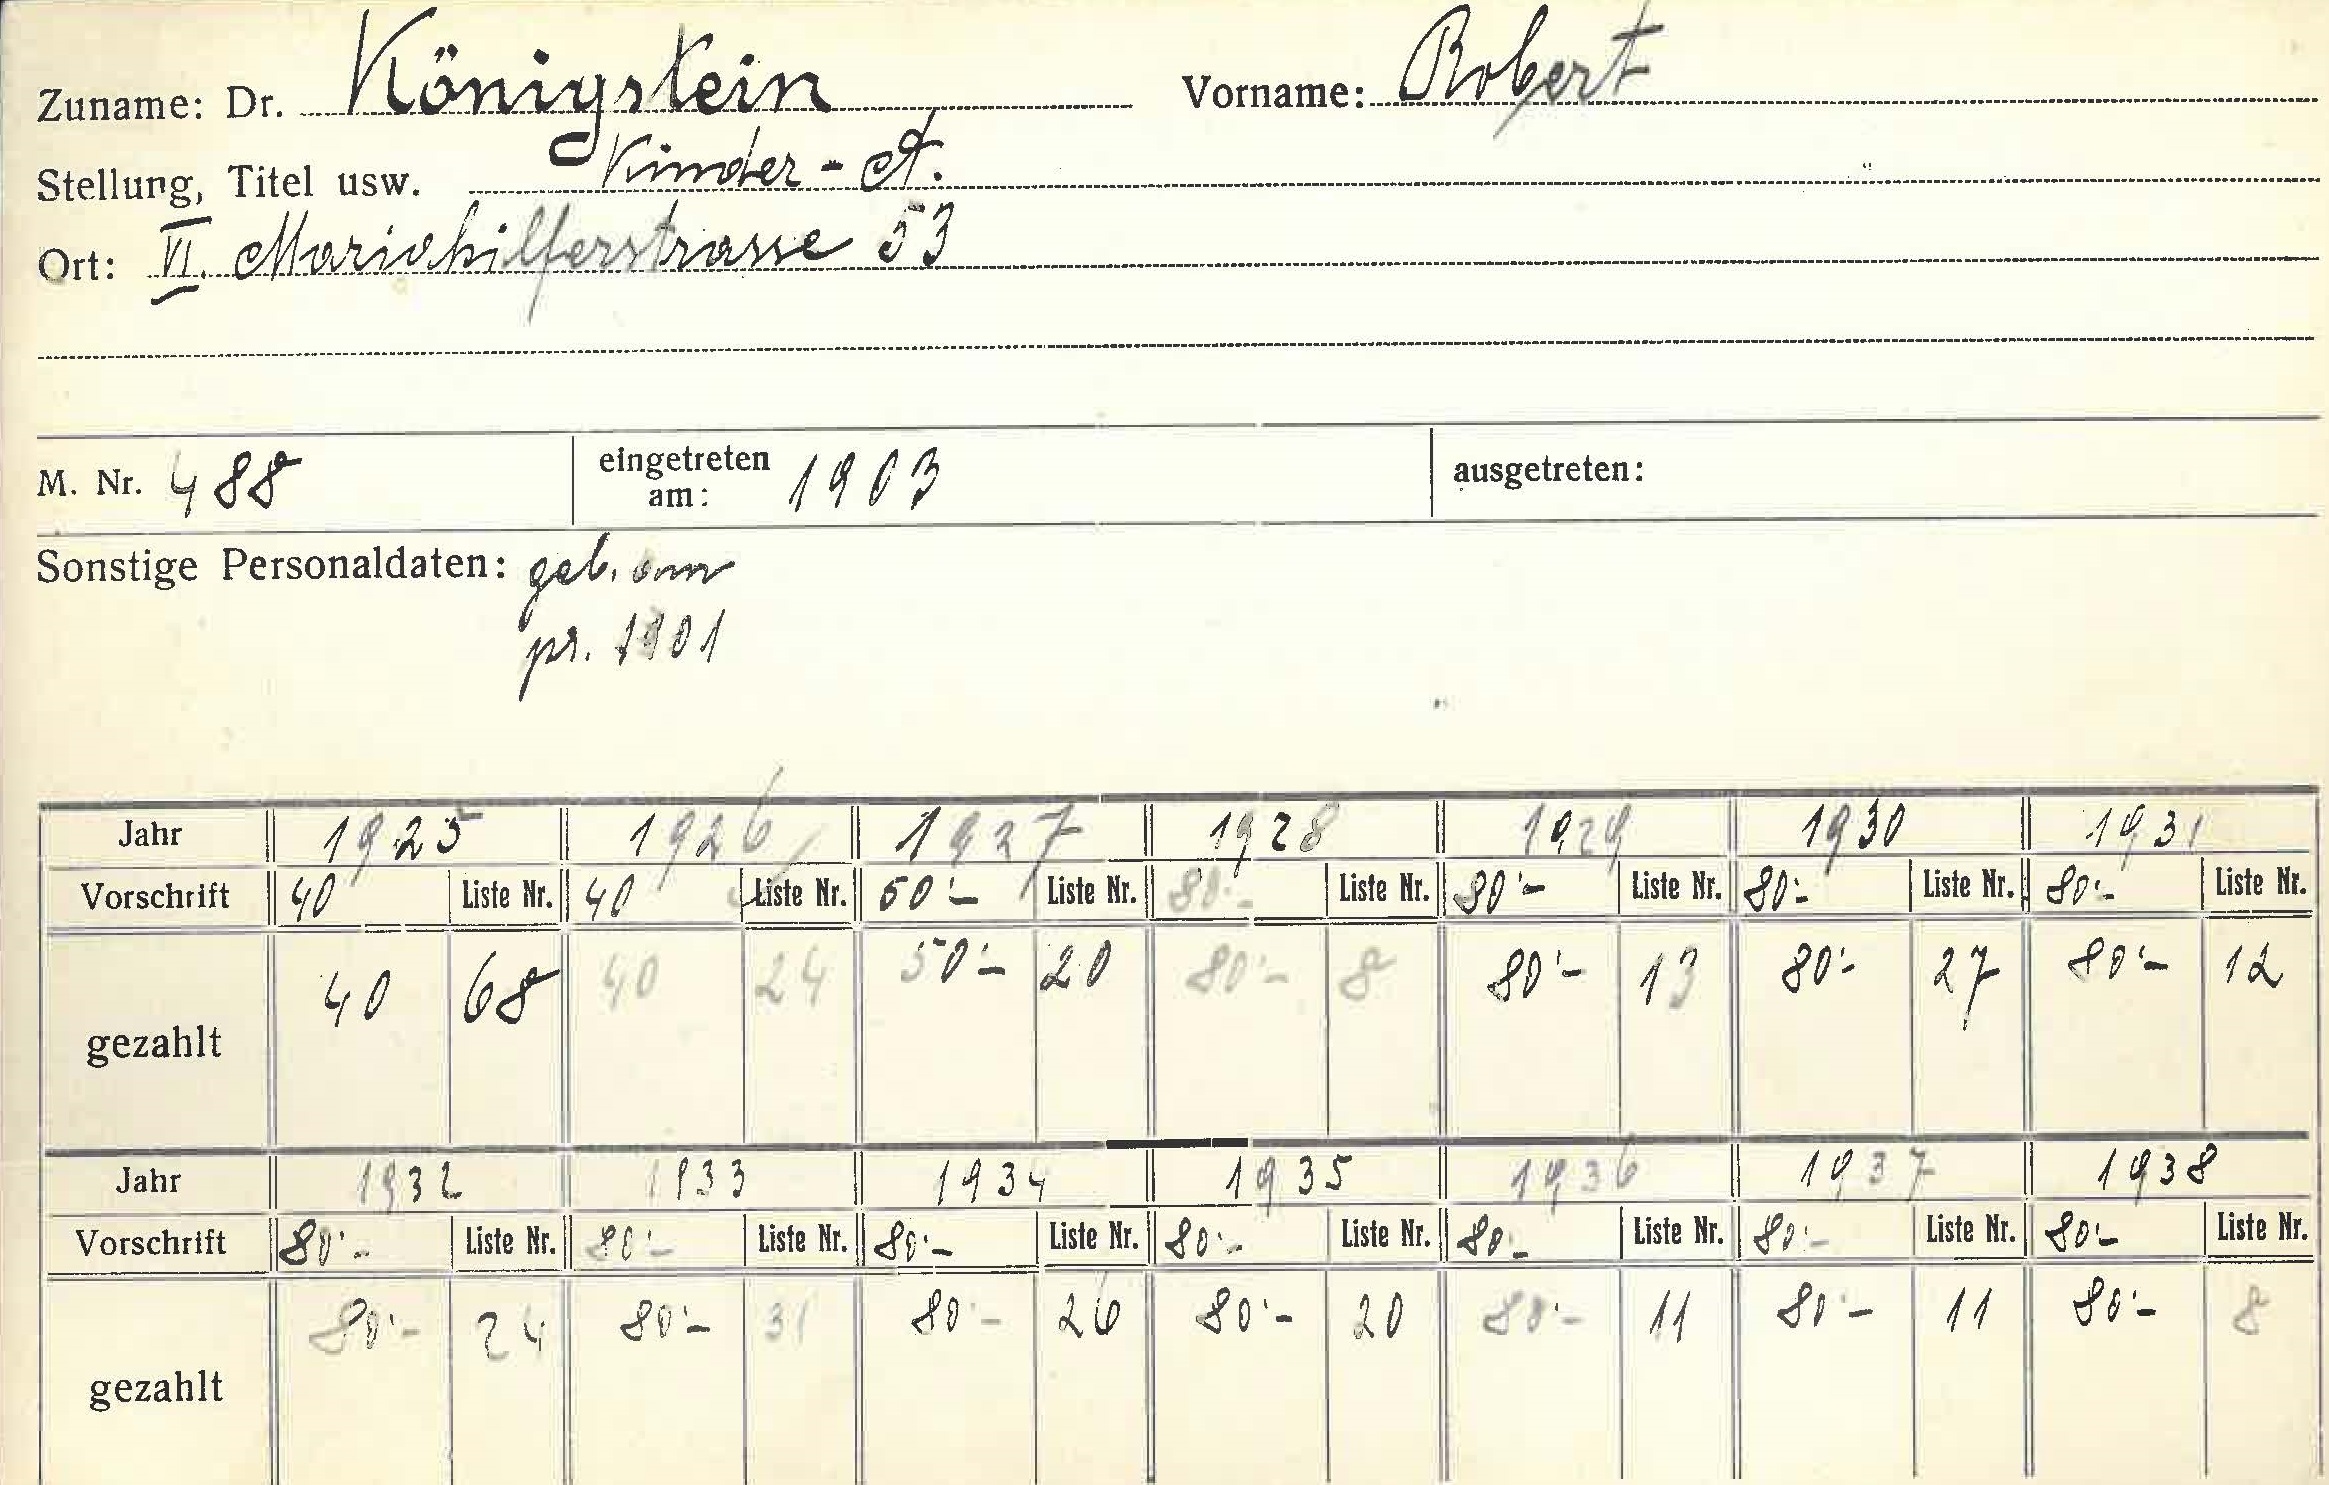 Zuname: Dr. Königstein Vorname: Robert
Stellung, Titel usw. Kinder - A.
Ort: VI. Mariahilferstrasse 53
M. Nr. 488 eingetreten am: 1903 ausgetreten:
Sonstige Personaldaten: geb. am
pr. 1901
Jahr 1925 1926 1927 1928 1929 1930 1931
Vorschrift 40 Liste Nr. 40 Liste Nr. 50'- Liste Nr. 80'- Liste Nr. 80'- Liste Nr. 80'- Liste Nr. 80'- Liste Nr.
gezahlt 40 68 40 24 50'- 20 80'- 8 80'- 13 80'- 27 80'- 12
Jahr 1932 1933 1934 1935 1936 1937 1938
Vorschrift 80'- Liste Nr. 80'- Liste Nr. 80'- Liste Nr. 80'- Liste Nr. 80'- Liste Nr. 80'- Liste Nr. 80'- Liste Nr.
gezahlt 80'- 24 80'- 31 80'- 26 80'- 20 80'- 11 80'- 11 80'- 8